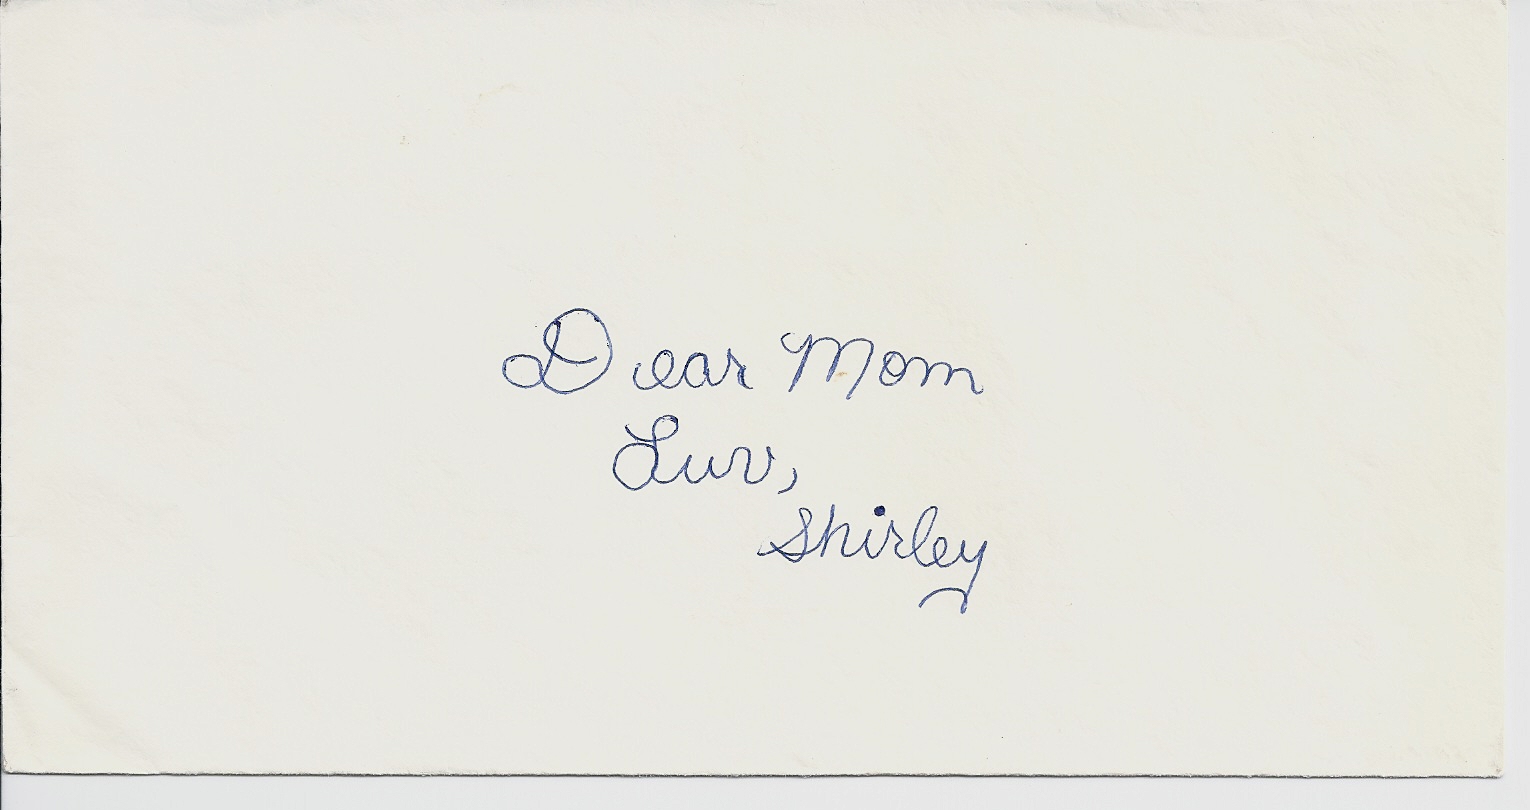 Dear Mom
Luv,
Shirley